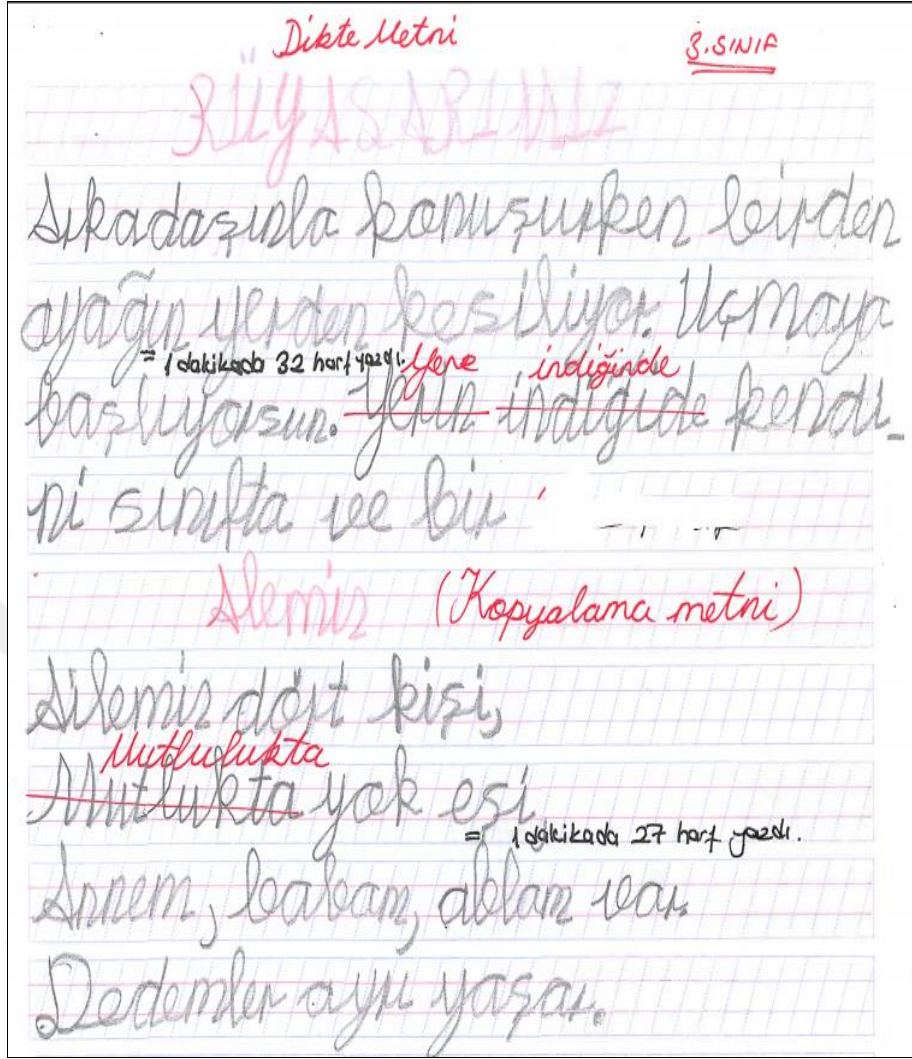 Dikte Metni 3.SINIF
RÜYASARIMIZ
Arkadaşınla konuşurken birden
ayağın yerden kesiliyor. Uçmaya
= 1 dakikada 32 harf yazdı. Yere indiğinde
başlıyorsun. Yerin indiğide kendi_
ni sınıfta ve bir
Alemiz (Kopyalama metni)
Ailemiz dört kişi,
Mutlulukta
Mutlukta yok eşi
= 1 dakikada 27 harf yazdı.
Annem, babam, ablam var.
Dedemler ayrı yaşar.